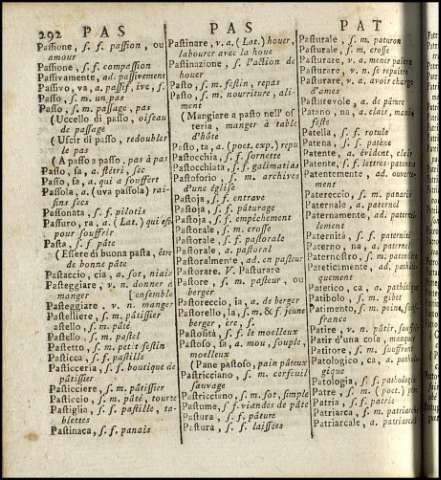 292 PAS PAS PAT
Passione, s. f. passion, ou
amour
Passione, s. f. compassion
Passivamente, ad. passivement
Passivo, va, a. passif, ive, f.
Passo, s. m. un pas
Passo, s. m. passage, pas
(Uccello di passo, oiseau
de passage
(Uscir di passo, redoubler
le pas
(A passo a passo, pas à pas
Passo, sa, a. flétri, sec
Passo, sa, a. qui a souffert
Passola, a. (uva passola) rai-
sins secs
Passonata, s. f. pilotis
Passuro, ra, a. (Lat.) qui est
pour souffrir
Pasta, s. f. pâte
(Essere di buona pasta, être
de bonne pâte
Pastaccio, cia, a. sot, niais
Pasteggiare, v. n. donner à
manger (ensemble
Pasteggiare, v. n. manger
Pastelliere, s. m. pâtissier
astello, s. m. pâté
Pastello, s. m. pastel
Pastetto, s. m. petit festin
Pasticca, s. f. pastille
Pasticceria, s. f. boutique de
pâtissier
Pasticciere, s. m. pâtissier
Pasticcio, s. m. pâté, tourte
Pastiglia, s. f. pastille, ta-
blettes
Pastinaca, s. f. panais
Pastinare, v. a. (Lat.) houer,
labourer avec la houe
Pastinazione, s. f. l'action de
houer
Pasto, s. m. festin, repas
Pasto, s. m. nourriture, ali-
ment
(Mangiare a pasto nell' os
teria, manger à table
d'hôte
Pasto, ta, a. (poet. exp.) repu
Pastocchia, s. f. sornette
Pastocchiata, s. f. galimatias
Pastoforio, s. m. archives
d'une église
Pastoja, s. f. entrave
Pastoja, s. f. pâturage
Pastoja, s. f. empêchement
Pastorale, s. m. crosse
Pastorale, s. f. pastorale
Pastorale, a. pastoral
Pastoralmente, ad. en pasteur
Pastorare. V. Pasturare
Pastore, s. m. pasteur, ou
berger
Pastoreccio, ia, a. de berger
Pastorello, la, s. m. & f. jeune
berger, ère, f.
Pastosità, s. f. le moelleux
Pastoso, sa, a. mou, souple,
moelleux
(Pane pastoso, pain pâteux
Pastricciano, s. m. cerfeuil
sauvage
Pastricciano, s. m. sot, simple
Pastume, s. f. viandes de pâte
Pastura, s. f. pâture
Pastura, s. f. laissées
Pasturale, s. m. paturon
Pasturale, s. m. crosse
Pasturare, v. a. mener paître
Pasturare, v. n. se repaître
Pasturare, v. a. avoir charge
d'ames
Pasturevole, a. de pâture
Patano, na, a. clair, mani-
feste
Patella, s. f. rotule
Patena, s. f. patène
Patente, a. évident, clair
Patente, s. f. lettres patentes
Patentemente, ad. ouverte-
ment
Patereccio, s. m. panaris
Paternale, a. paternel
Paternamente, ad. paternel-
lement
Paternità, s. f. paternité
Paterno, na, a. paternel
Paternostro, s. m. patenôtre
Pateticamente, ad. pathéti-
quement
Patetico, ca, a. pathétique
Patibolo, s. m. gibet
Patimento, s. m. peine, souf-
france
Patire, v. n. pâtir, souffrir
Patir d'una cosa, manquer
Patitore, s. m. souffrant
Patologico, ca, a. patholo-
gique
Patologia, s. f. pathologie
Patre, s. m. (poet.) père
Patria, s. f. patrie
Patriarca, s. m. patriarche
Patriarcale, a. patriarcal